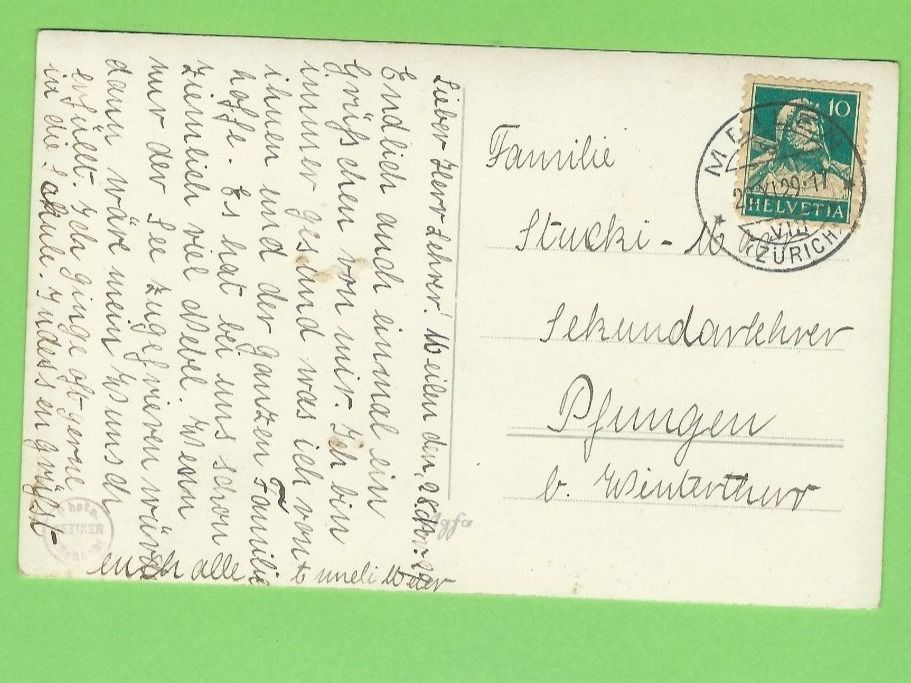 Lieber Herr Lehrer! Meilen den, 28.
Endlich auch einmal ein
Grüsschen von mir. Ich bin
immer gesund was ich von
ihnen und der ganzen Familie
hoffe. Es hat bei uns schon
ziemlich viel Nebel. Wenn
nur der See zugefrieren würde
dann wäre mein Wunsch
erfüllt. Ich ginge oft gerne
in die Schule. Indess en grüsst
euch alle
Familie
Stucki -
Sekundarlehrer
Pfungen
b. Winterthur
10
HELVETIA
ZÜRICH
Photo
Agfa